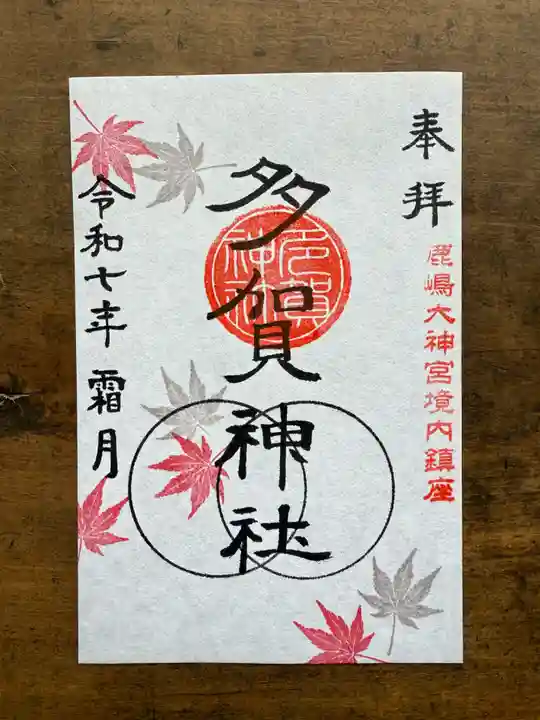 奉拝
鹿嶋大神宮境内鎮座
多賀神社
多賀神社
令和七年 霜月